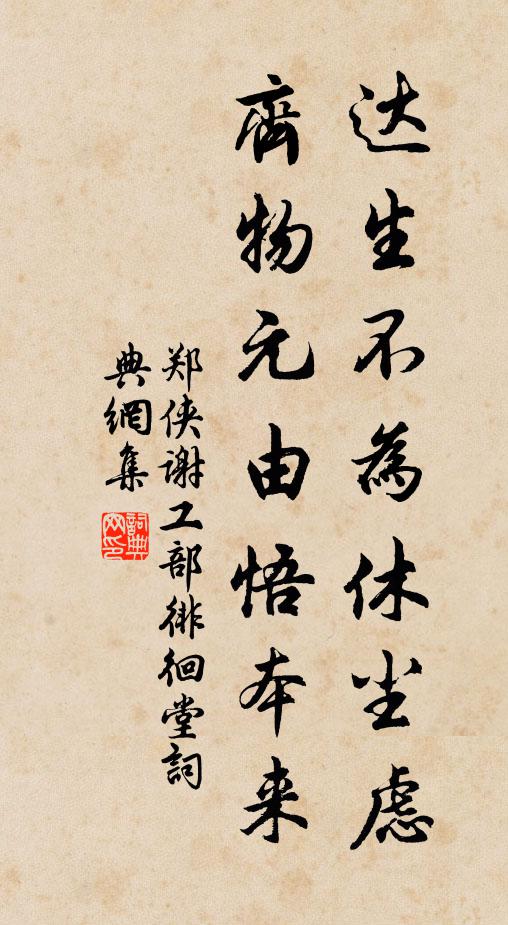 达生不为休尘虑
齊物元由悟本来
郑侠谢工部徘徊堂詞
典網集
詞典
网印